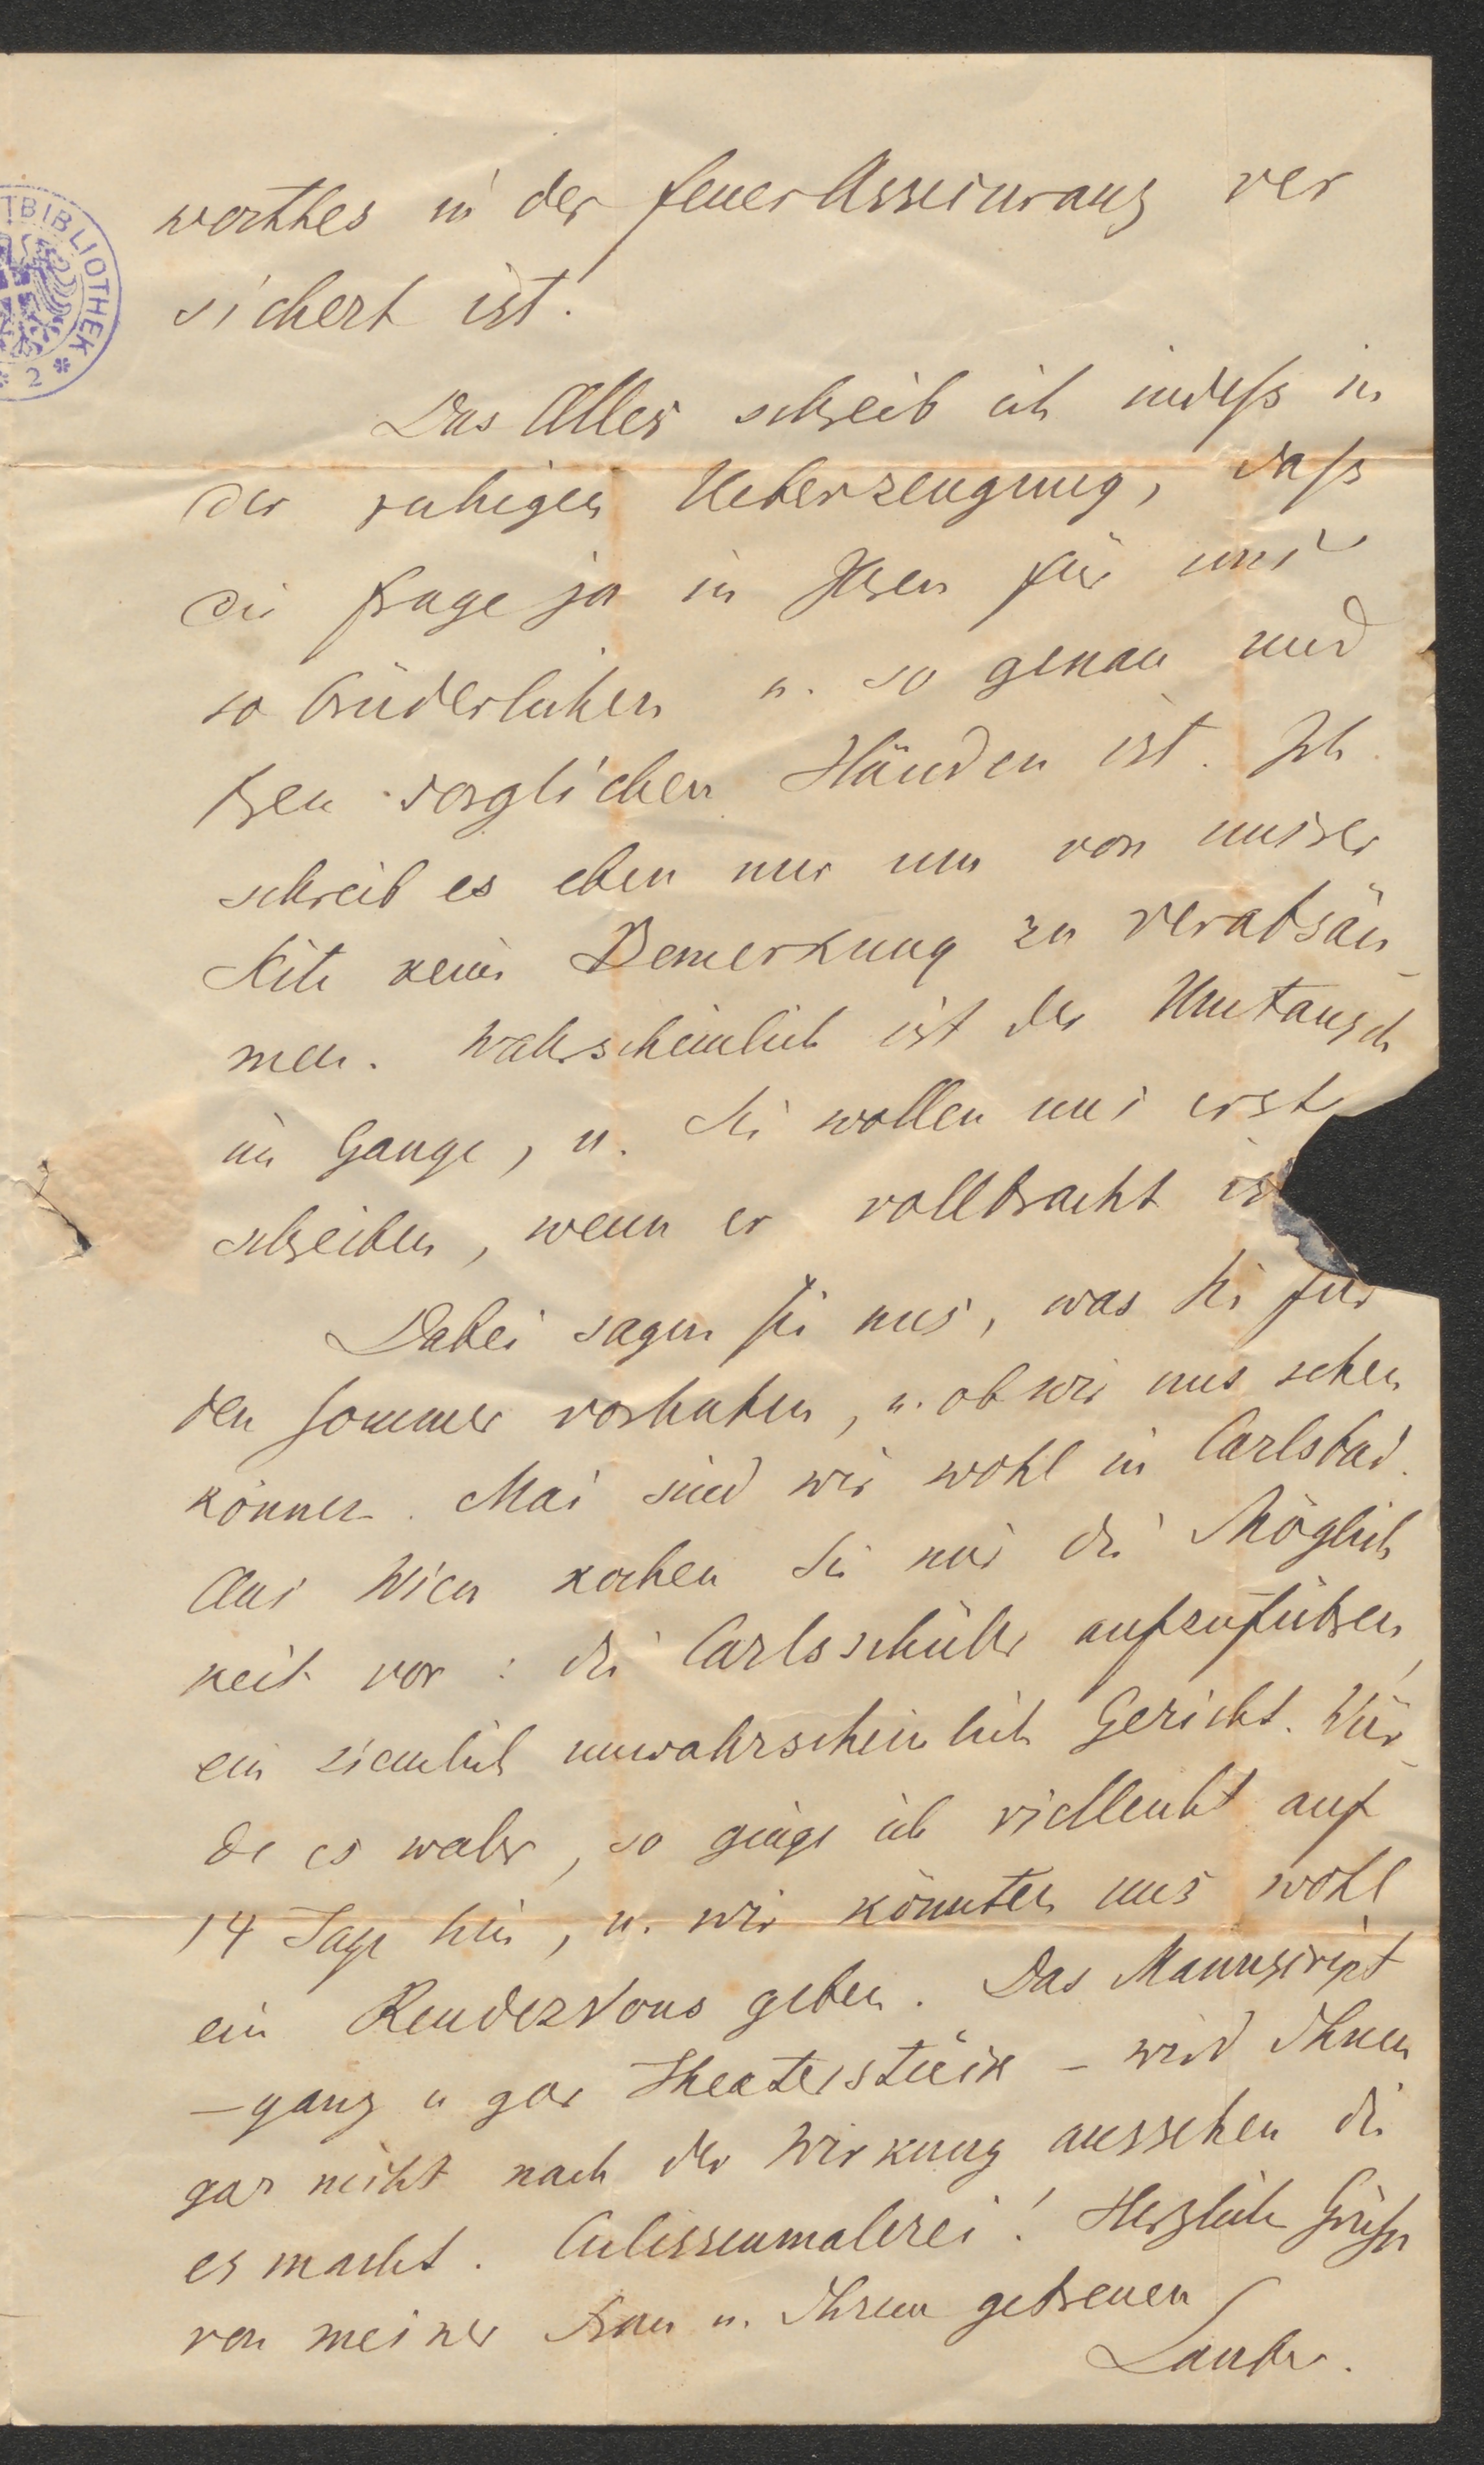 werthes in der Feuer Assecuranz ver
sichert ist.
Das Alles schreib ich indeß in
der ruhigen Ueberzeugung, daß
die Frage ja in Ihren für uns
so brüderlichen u. so genau und
treu sorglichen Händen ist. Ich
schreib es eben nur um von unsrer
Seite keine Bemerkung zu verabsäu-
men. Wahrscheinlich ist der Umtausch
im Gange, u. Sie wollen uns erst
schreiben, wenn er vollbracht ist
Dabei sagen Sie uns, was Sie für
den Sommer vorhaben, u. ob wir uns sehen
können. Mai sind wir wohl in Carlsbad.
Aus Wien kochen Sie mir die Möglich
keit vor: die Carlsschüler aufzuführen,
ein ziemlich unwahrscheinlich Gericht. Wür-
de es wahr, so ginge ich vielleicht auf
14 Tage hin, u. wir könnten uns wohl
ein RendezVous geben. Das Manuscript
– ganz u gar Theaterstück – wird Ihnen
gar nicht nach der Wirkung aussehen die
es macht. Culissenmalerei! Herzliche Grüße
von meiner Frau u. Ihrem getreuen
Laube.
TBIBLIOTHEK * 2 *